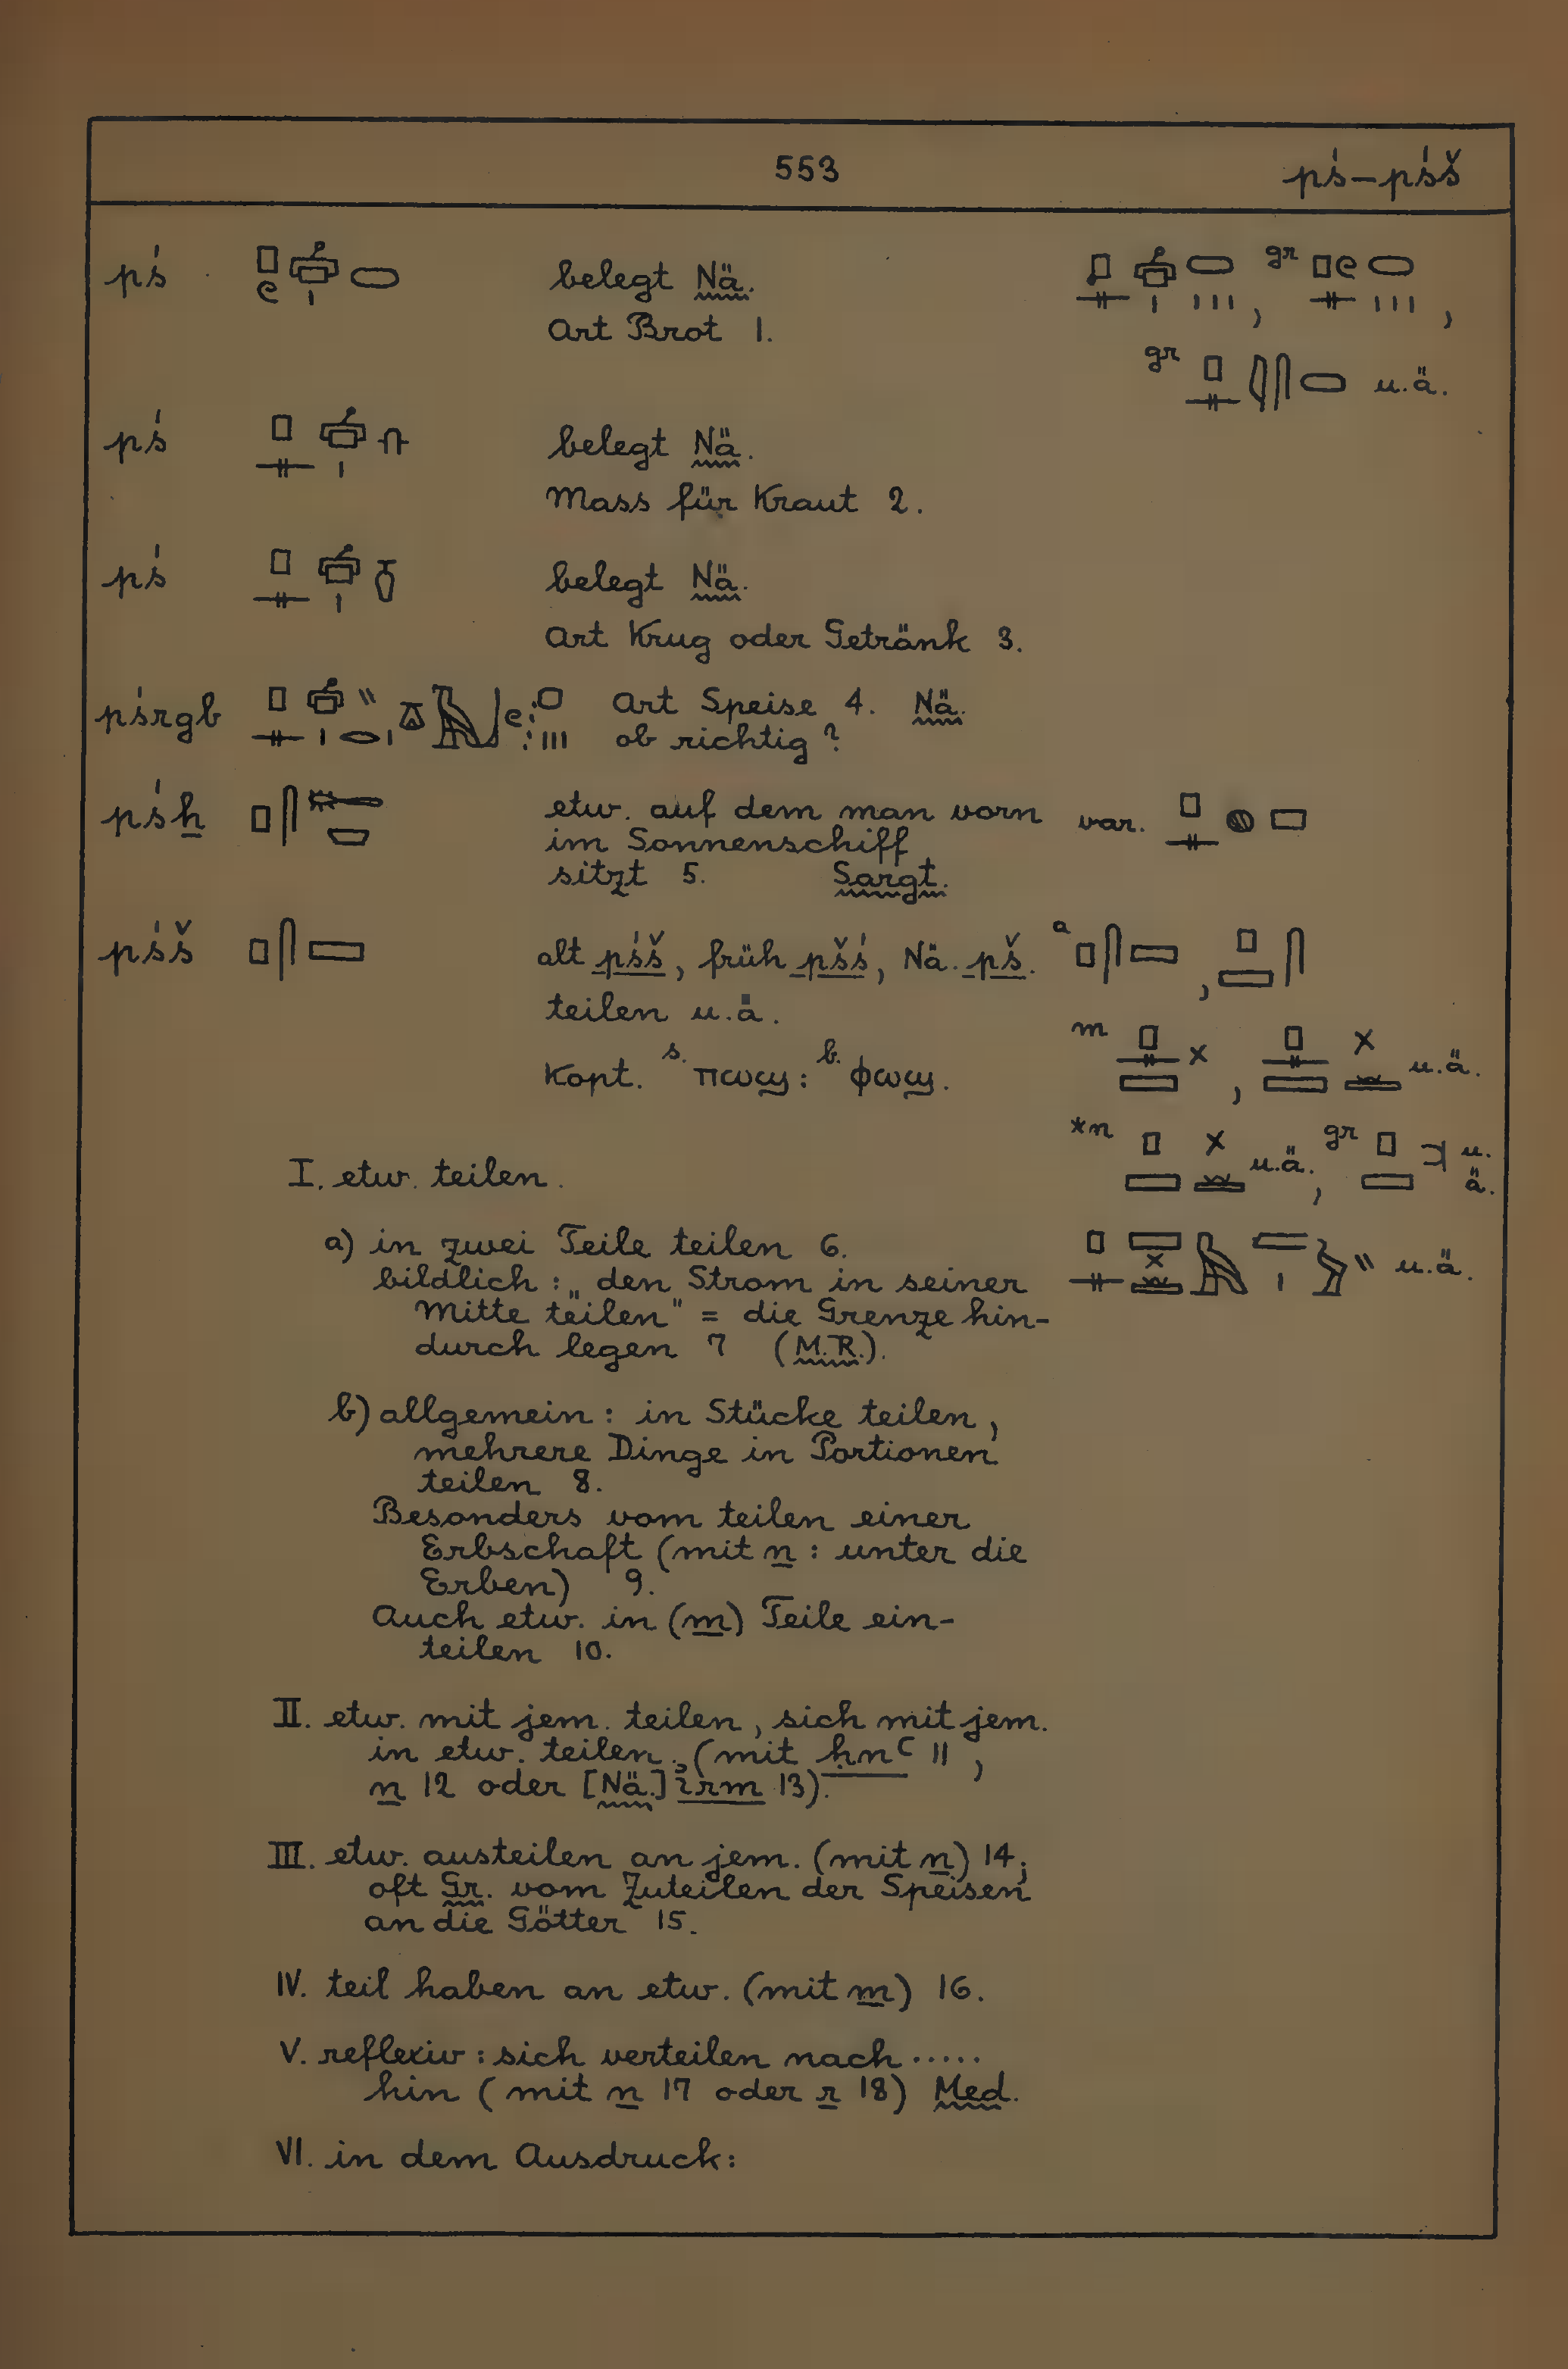 553
pś–pśš
pś belegt Nä.
Art Brot 1.
gr
gr u.ä.
pś belegt Nä.
Mass für Kraut 2.
pś belegt Nä.
Art Krug oder Getränk 3.
pśrgb Art Speise 4. Nä.
ob richtig?
pśẖ etw. auf dem man vorn var.
im Sonnenschiff
sitzt 5. Sargt.
pśš alt pśš, früh pšś, Nä. pš. a
teilen u.ä.
m u.ä.
Kopt. s. ⲡⲱϣ : b. ⲫⲱϣ.
*n u.ä., gr u.ä.
u.ä.
I. etw. teilen.
a) in zwei Teile teilen 6.
bildlich: „den Strom in seiner
Mitte teilen" = die Grenze hin-
durch legen 7 (M.R.).
b) allgemein: in Stücke teilen,
mehrere Dinge in Portionen
teilen 8.
Besonders vom teilen einer
Erbschaft (mit n: unter die
Erben) 9.
Auch etw. in (m) Teile ein-
teilen 10.
II. etw. mit jem. teilen, sich mit jem.
in etw. teilen. (mit ḥnꜥ 11,
n 12 oder [Nä.] ꞽrm 13).
III. etw. austeilen an jem. (mit n) 14;
oft Gr. vom Zuteilen der Speisen
an die Götter 15.
IV. teil haben an etw. (mit m) 16.
V. reflexiv: sich verteilen nach .....
hin (mit n 17 oder r 18) Med.
VI. in dem Ausdruck: